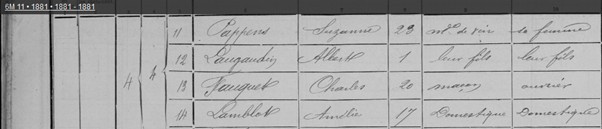 6M 11 • 1881 • 1881 - 1881
11 Pappens Suzanne 28 md de vin sa femme
12 Laugaudin Albert 1 leur fils leur fils
4 4 13 Fauquet Charles 20 maçon ouvrier
14 Lamblot Amélie 17 Domestique Domestique